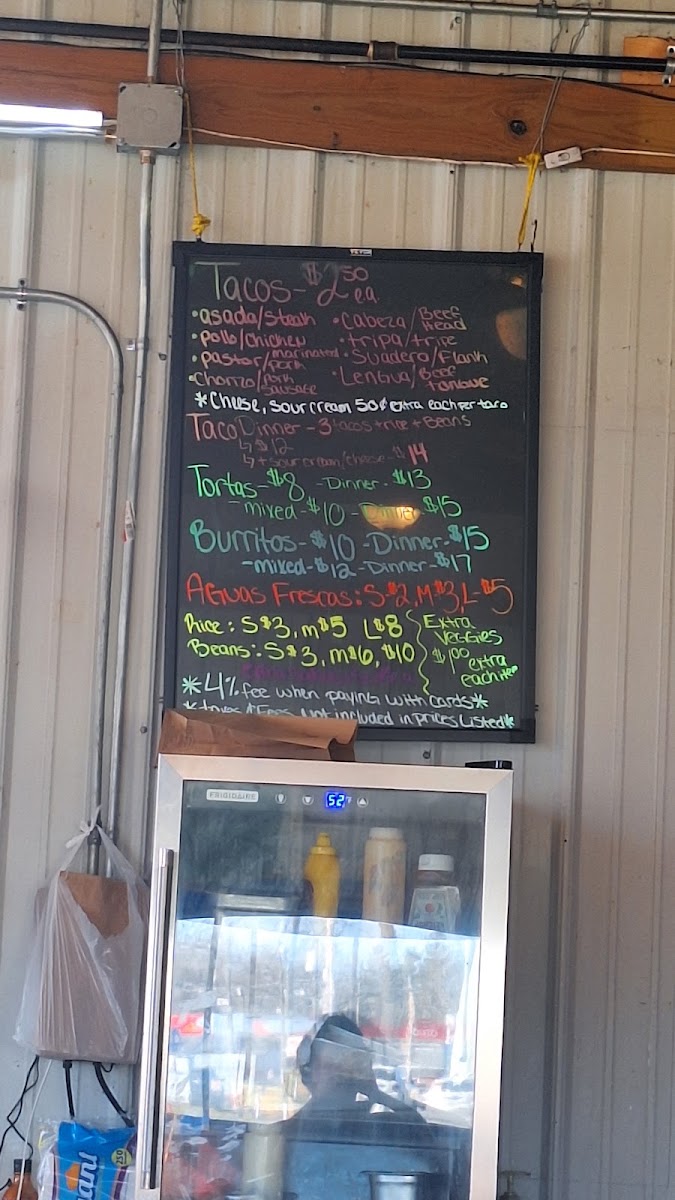 Tacos - $2.50 ea.
•asada/steak •Cabeza/Beef Head
•pollo/chicken •tripa/tripe
•pastor/marinated pork •Suadero/Flank
•Chorizo/pork sausage •Lengua/Beef tongue
*Cheese, sour cream 50¢ extra each per taco
Taco Dinner - 3 tacos + rice + Beans
↳ $12
↳ + sour cream/cheese - $14
Tortas - $8 - Dinner - $13
- mixed - $10 - Dinner - $15
Burritos - $10 - Dinner - $15
- mixed - $12 - Dinner - $17
Aguas Frescas: S $2, M $3, L $5
Rice: S $3, m $5 L $8
Beans: S $3, m $6, $10
Extra Veggies
$1.00 extra
each item
*4% fee when paying with cards*
*taxes & Fees not included in prices Listed*
FRIGIDAIRE
52°F